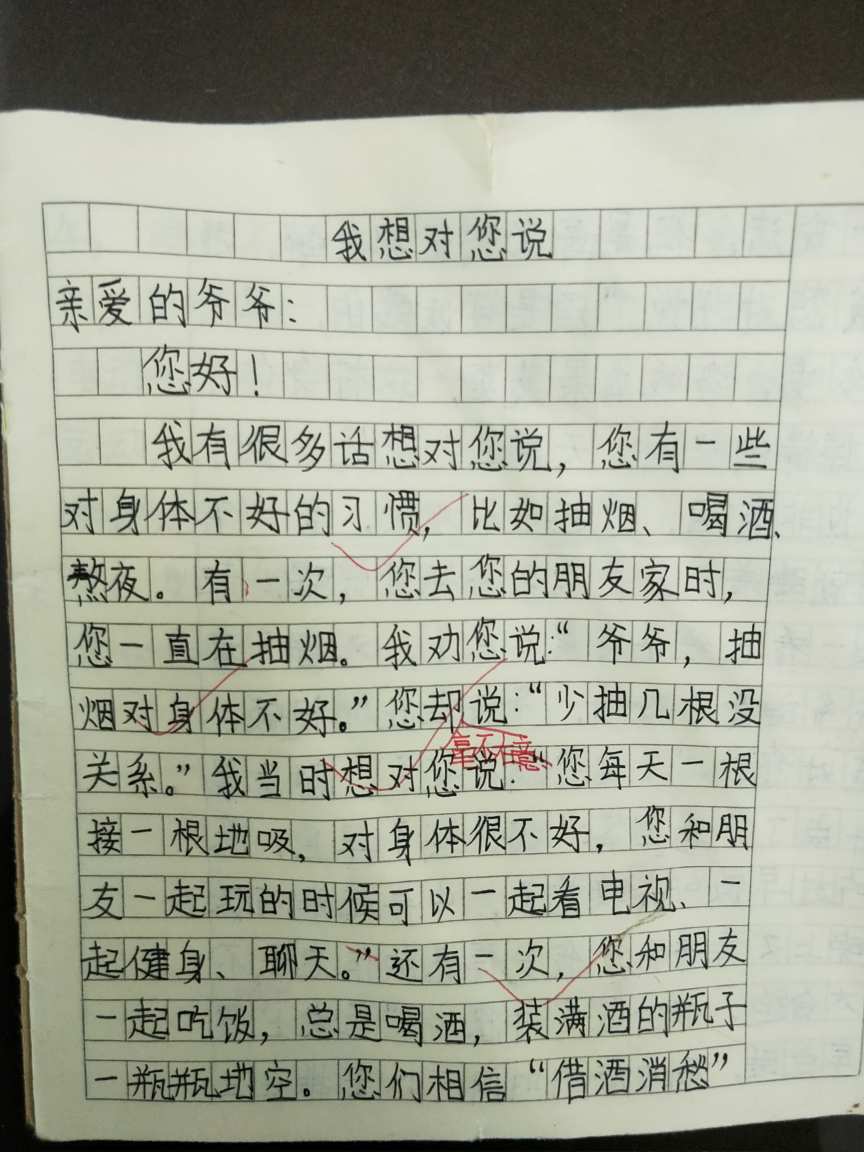 我想对您说
亲爱的爷爷：
您好！
我有很多话想对您说，您有一些
对身体不好的习惯，比如抽烟、喝酒、
熬夜。有一次，您去您的朋友家时，
您一直在抽烟。我劝您说：“爷爷，抽
烟对身体不好。”您却说：“少抽几根没
毫不在意
关系。”我当时想对您说：“您每天一根
接一根地吸，对身体很不好，您和朋
友一起玩的时候可以一起看电视、一
起健身、聊天。”还有一次，您和朋友
一起吃饭，总是喝酒，装满酒的瓶子
一瓶瓶地空。您们相信“借酒消愁”